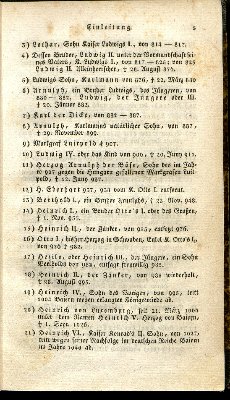 Einleitung. 5
3) Lothar, Sohn Kaiser Ludwigs I., von 814 — 817.
4) Dessen Bruder, Ludwig II. unter der Vormundschaft seines Vaters, K. Ludwigs I., von 817 — 825; von 825
Ludwig II. Alleinherrscher, † 28. August 876.
5) Ludwigs Sohn, Karlmann von 876, † 22. März 880
6) Arnulph, ein Bruder Ludwigs, des Jüngeren, von
880 — 882, Ludwig, der Jüngere oder III.
† 20. Jänner 882.
7) Karl der Dicke, von 882 — 887.
8) Arnulph, Karlmanns natürlicher Sohn, von 887,
† 29. November 899.
9) Markgraf Luitpold † 907.
10) Ludwig IV. oder das Kind von 900, † 20. Juny 911.
11) Herzog Arnulph der Böse, Sohn des im Jahre 907 gegen die Hungarn gefallenen Markgrafen Luitpold, † 12. July 937.
12) H. Eberhart 937, 938 von K. Otto I. entsetzt.
13) H. Berthold, ein Bruder Arnulphs, † 22. Nov. 948.
14) Heinrich I., ein Bruder Otto's I. oder des Großen,
† 1. Nov. 955.
15) Heinrich II., der Zänker, von 955, entsetzt 976.
16) Otto I., bisher Herzog in Schwaben, Enkel K. Otto's I.,
von 976 † 982.
17) Hezilo, oder Heinrich III., der Jüngere, ein Sohn
Bertholds von 982, entsagt freiwillig 985.
18) Heinrich II., der Zänker, von 985 wiederholt,
† 28. August 995.
19) Heinrich IV., Sohn des Vorigen, von 995, tritt
1004 Bayern wegen erlangter Königswürde ab.
20) Heinrich von Luxemburg, seit 21. März 1004
unter dem Namen Heinrich V. Herzog von Bayern,
21) Heinrich VI., Kaiser Konrad's II. Sohn, von 1027,
tritt wegen seiner Nachfolge im deutschen Reiche Baiern
im Jahre 1040 ab.